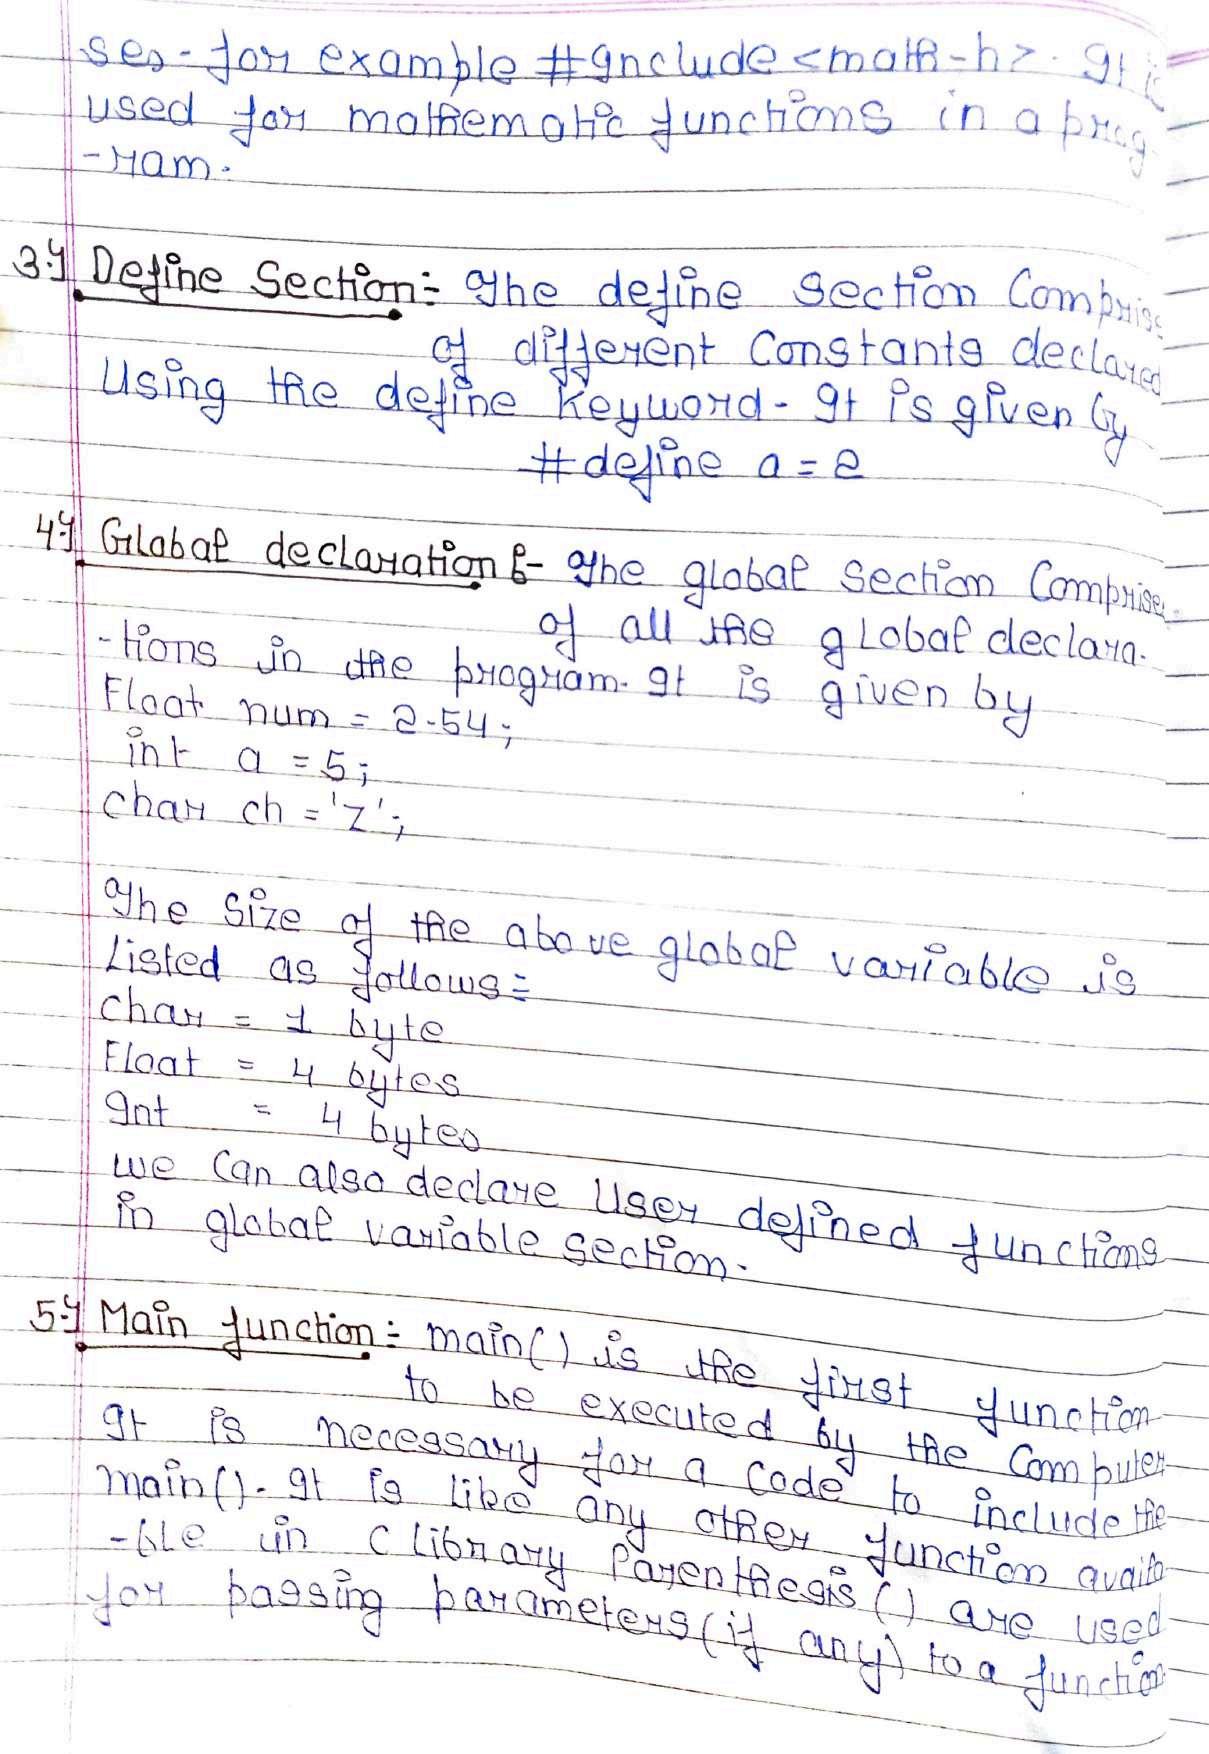 ses - for example #Include <math-h>. It is
used for mathematic functions in a prog
-ram.
3.) Define Section:- The define Section Comprise
of different Constants declared
Using the define Keyword - It is given by
#define a = 2
4.) Global declaration :- The global Section Comprise
of all the global declara-
-tions in the program. It is given by
Float num = 2.54;
int a = 5;
char ch = 'Z';
The Size of the above global variable is
Listed as follows:-
Char = 1 byte
Float = 4 bytes
Int = 4 bytes
we Can also declare User defined functions
in global variable section.
5.) Main function:- main() is the first function
to be executed by the Computer
It is necessary for a Code to include the
main(). It is like any other function availa
-ble in C library Parenthesis () are used
for passing parameters (if any) to a function